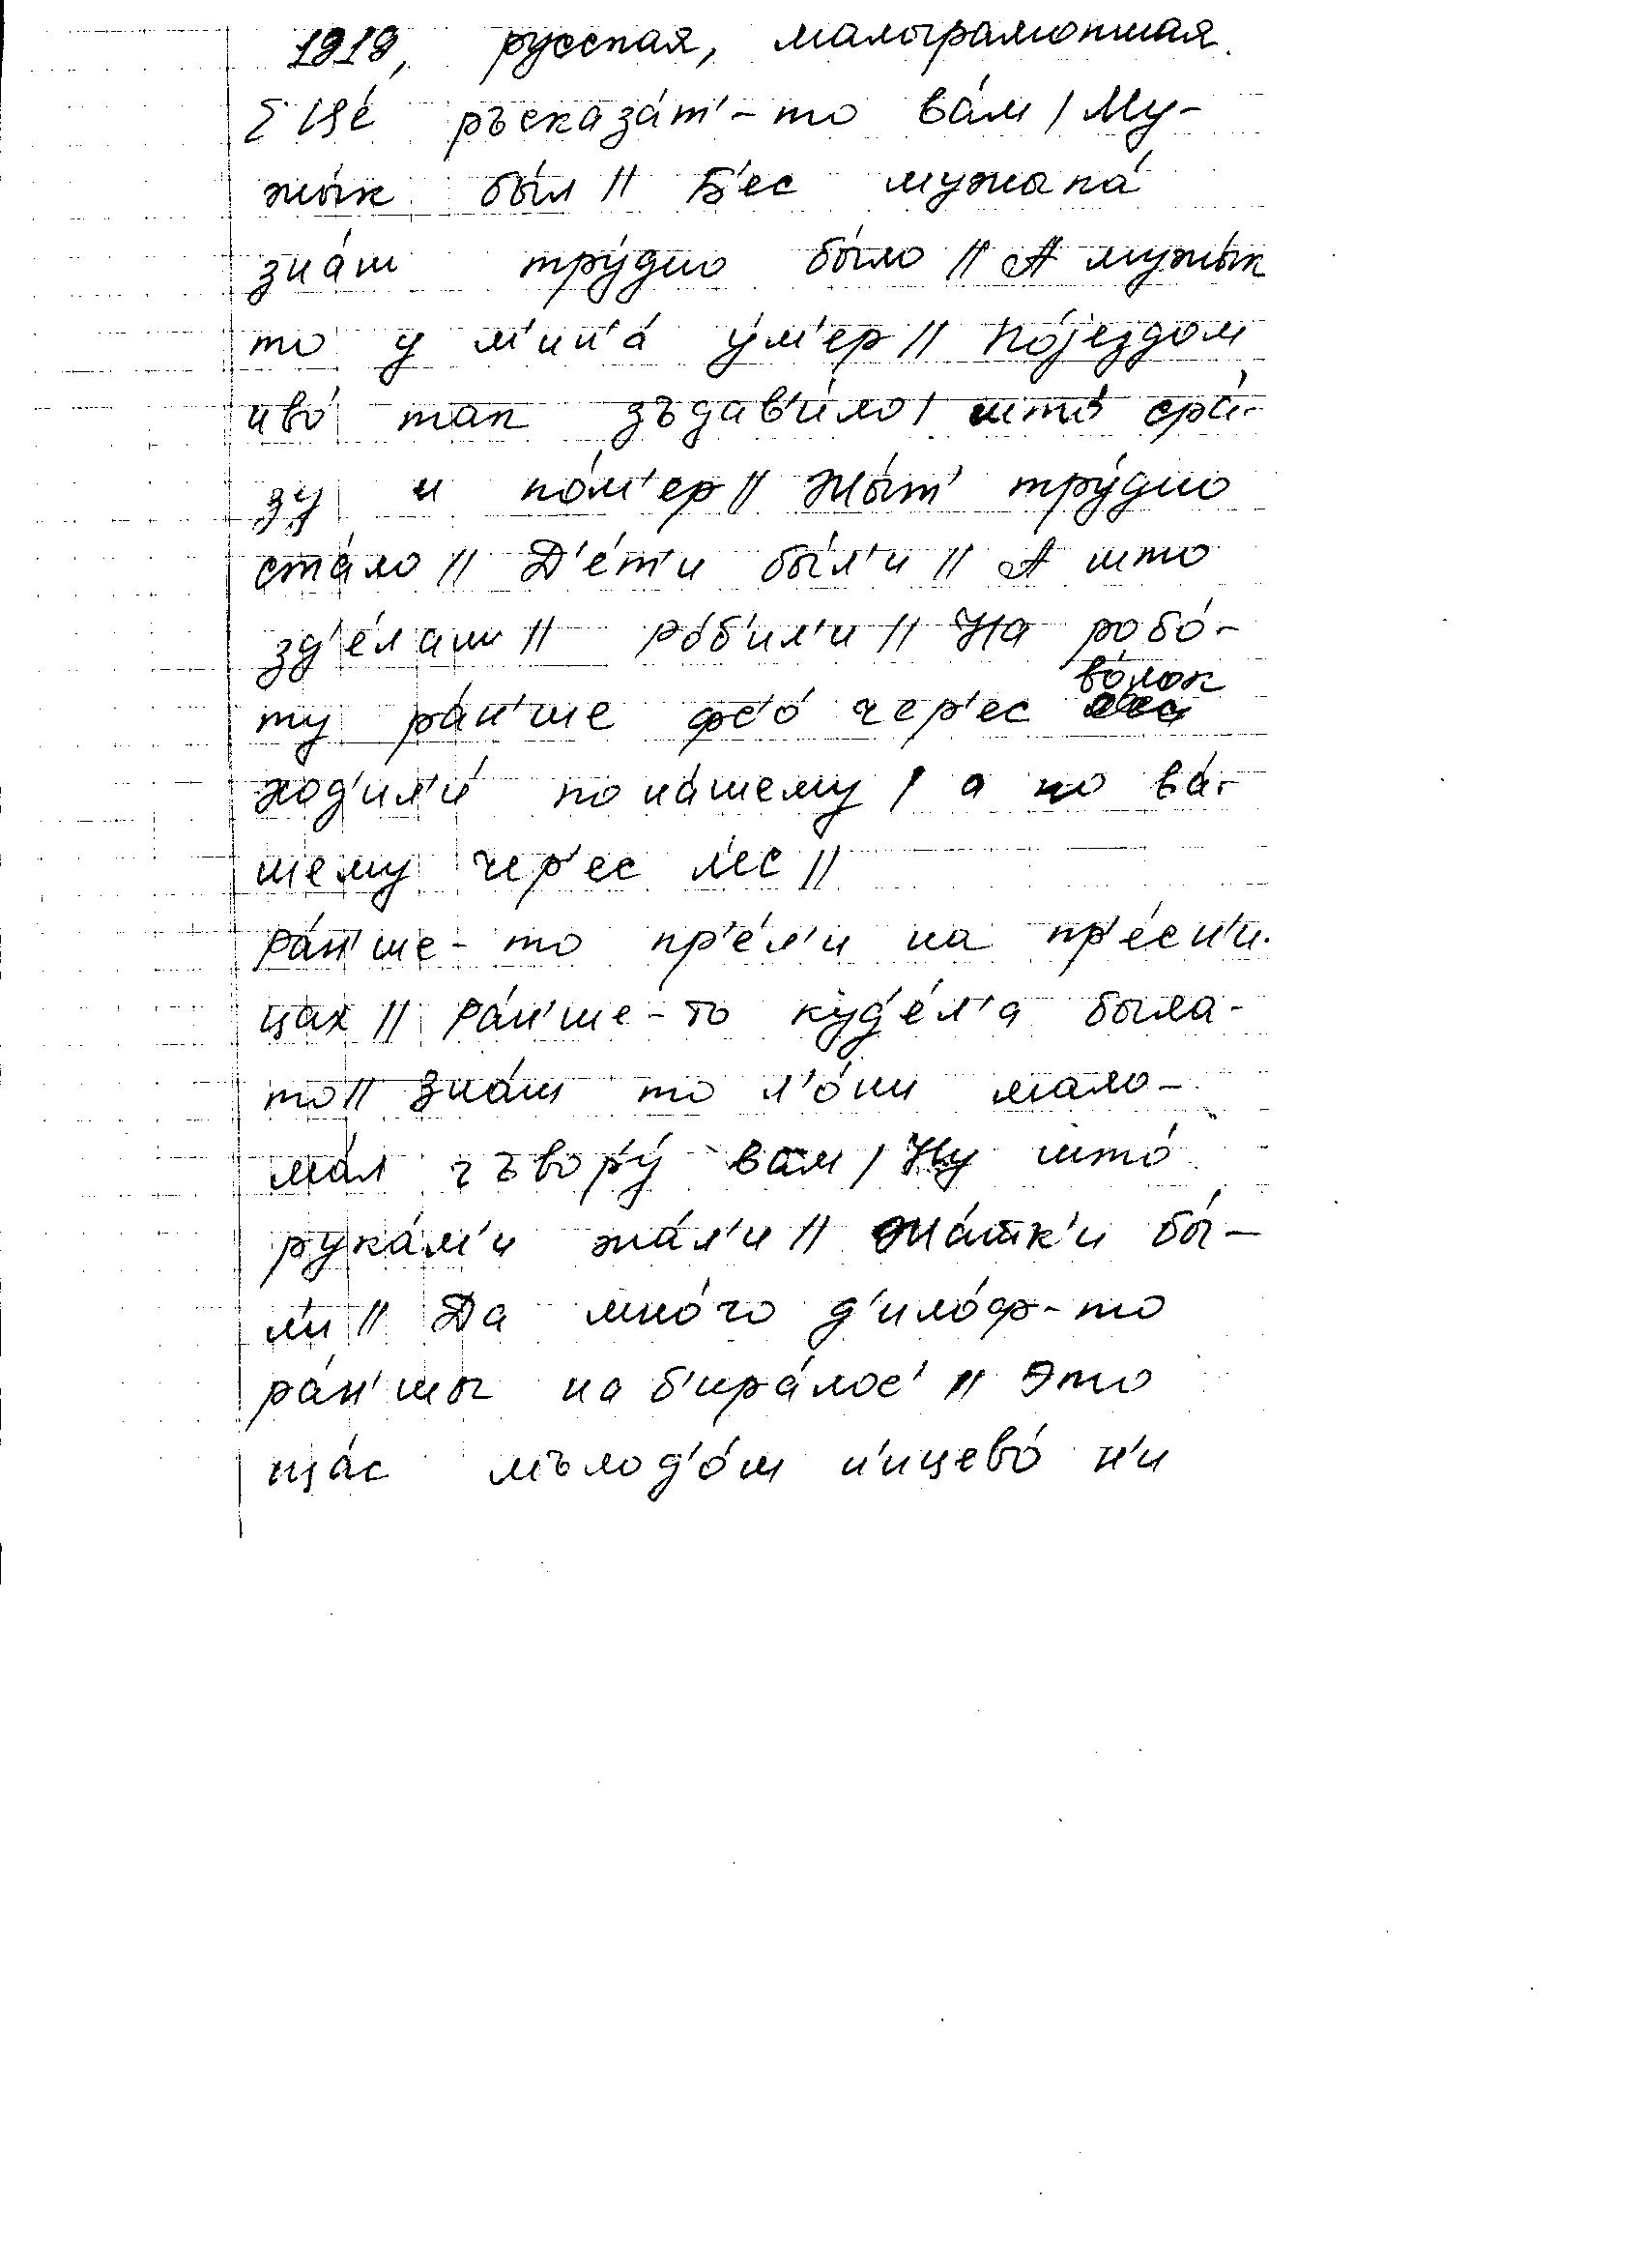 1919, русская, малограмотная.
Ещé ръсказáт'-то вáм / Му-
жы́к бы́л // Б'ес мужыкá
знáш трýдно бы́ло // А мужы́к
то у м'ин'á ýм'ер // Пójездом
ивó так зъдав'и́ло / штó срá-
зу и пóм'ер // Жы́т' трýдно
стáло // Д'éт'и бы́л'и // А што
зд'éлаш // Рóб'ил'и // На робó-
ту рáн'ше фс'ó чер'ес вóлок
ход'ил'и́ по нáшему / а по вá-
шему чер'ес л'ес //
Рáн'ше-то пр'éл'и на пр'éсн'и-
цах // Рáн'ше-то куд'éл'а была-
то // Знáш то л'óн мало-
мáл гъвор'ý вам / Ну штó
рукáм'и жáл'и // Жáтк'и бы́-
л'и // Да мнóго д'илóф-то
рáн'шы наб'ирáлос' // Это
щáс мълод'óш н'ицевó н'и